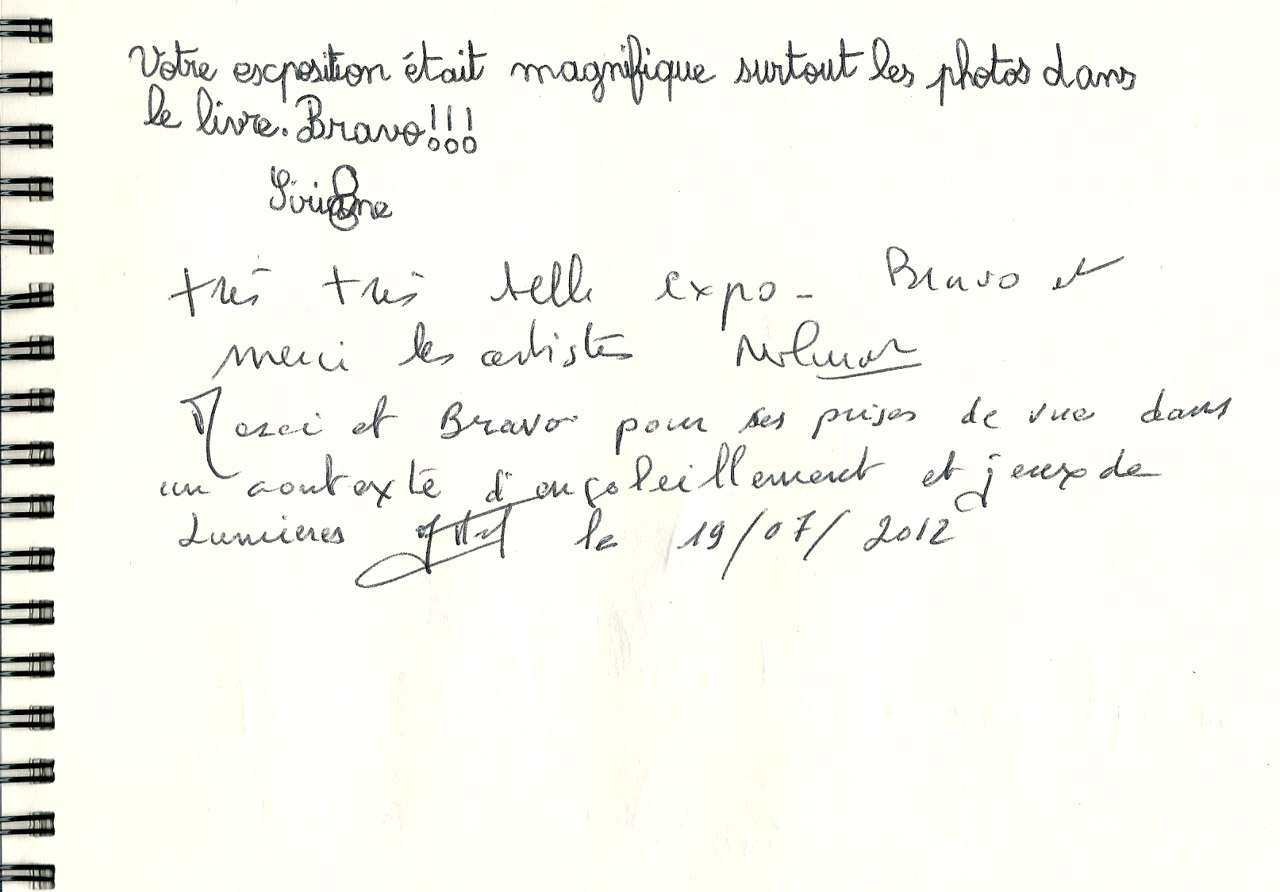 Votre escposition était magnifique surtout les photos dans
le livre. Bravo!!!
très très belle expo - Bravo et
merci les artistes
Merci et Bravo pour ses prises de vue dans
un contexte d'ençoleillement et jeux de
Lumieres le 19/07/2012